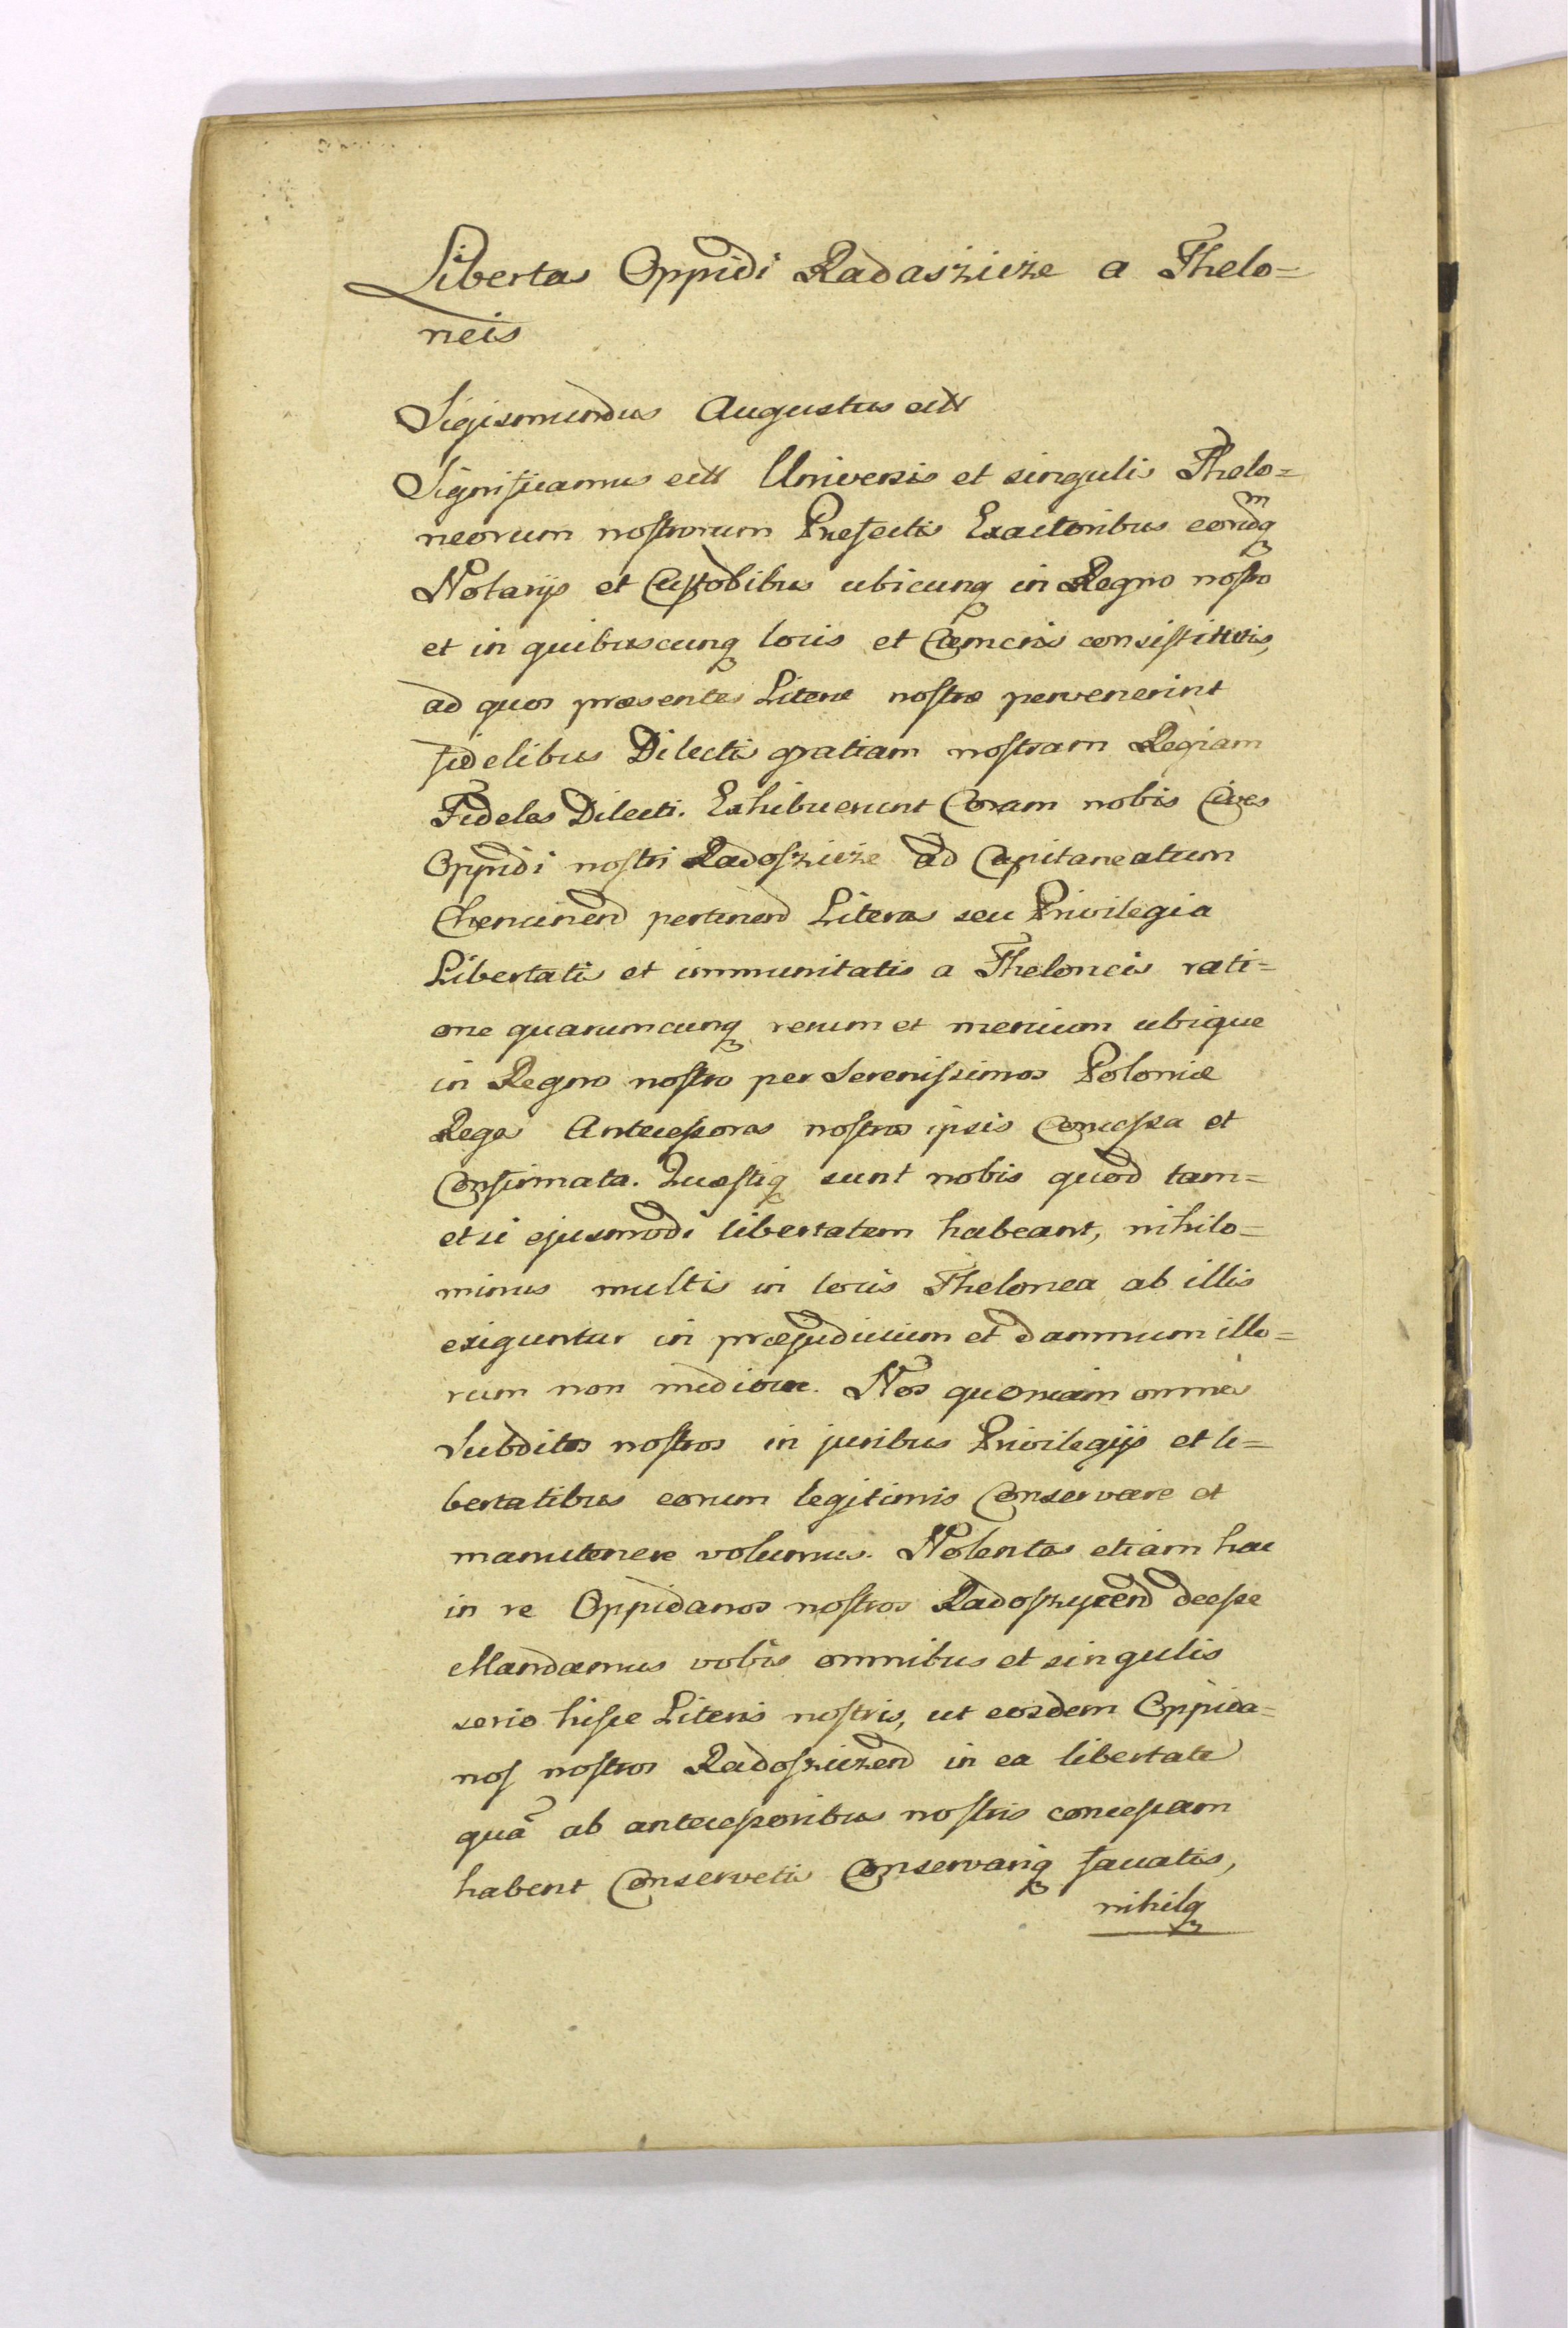 Libertas Oppidi Radaszicze a Thelo=
neis
Sigismundus Augustus etc
Significamus etc Universis et singulis Thelo=
neorum nostrorum Præfectis Exactoribus eorudmq
Notarijs et Custodibus ubicunq in Regno nostro
et in quibuscunq locis et consistitutis,
ad quos præsentes Literæ nostræ pervenerint
fidelibus Dilectis gratiam nostram Regiam
Fideles Dilecti. Exhibuerunt Coram nobis Cives
Oppidi nostri Radoszicze ad Capitaneatum
Chencinen pertinen Literas seu Privilegia
Libertatis et immunitatis a Theloneis rati=
one quarumcunq rerum et mercium ubique
in Regno nostro per Serenissimos Poloniæ
Reges Antecessores nostros ipsis Concessa et
Confirmata. Questiq sunt nobis quod tam=
etsi ejusmodi libertatem habeant, nihilo=
minus multis in locis Thelonea ab illis
exiguntur in præjudicium et damnum illo=
rum non mediocre. Nos quoniam omnes
Subditos nostros in juribus Privilegijs et li=
bertatibus eorum legitimis Conservare et
manutenere volumus. Nolentes etiam hac
in re Oppidanos nostros Radoszycen deesse
Mandamus vobis omnibus et singulis
serio hisce Literis nostris, ut eosdem Oppida=
nos nostros Radosziczen in ea libertate
quã ab antecessoribus nostris concessam
habent Conservetis Conservariq faciatis,
nihilq